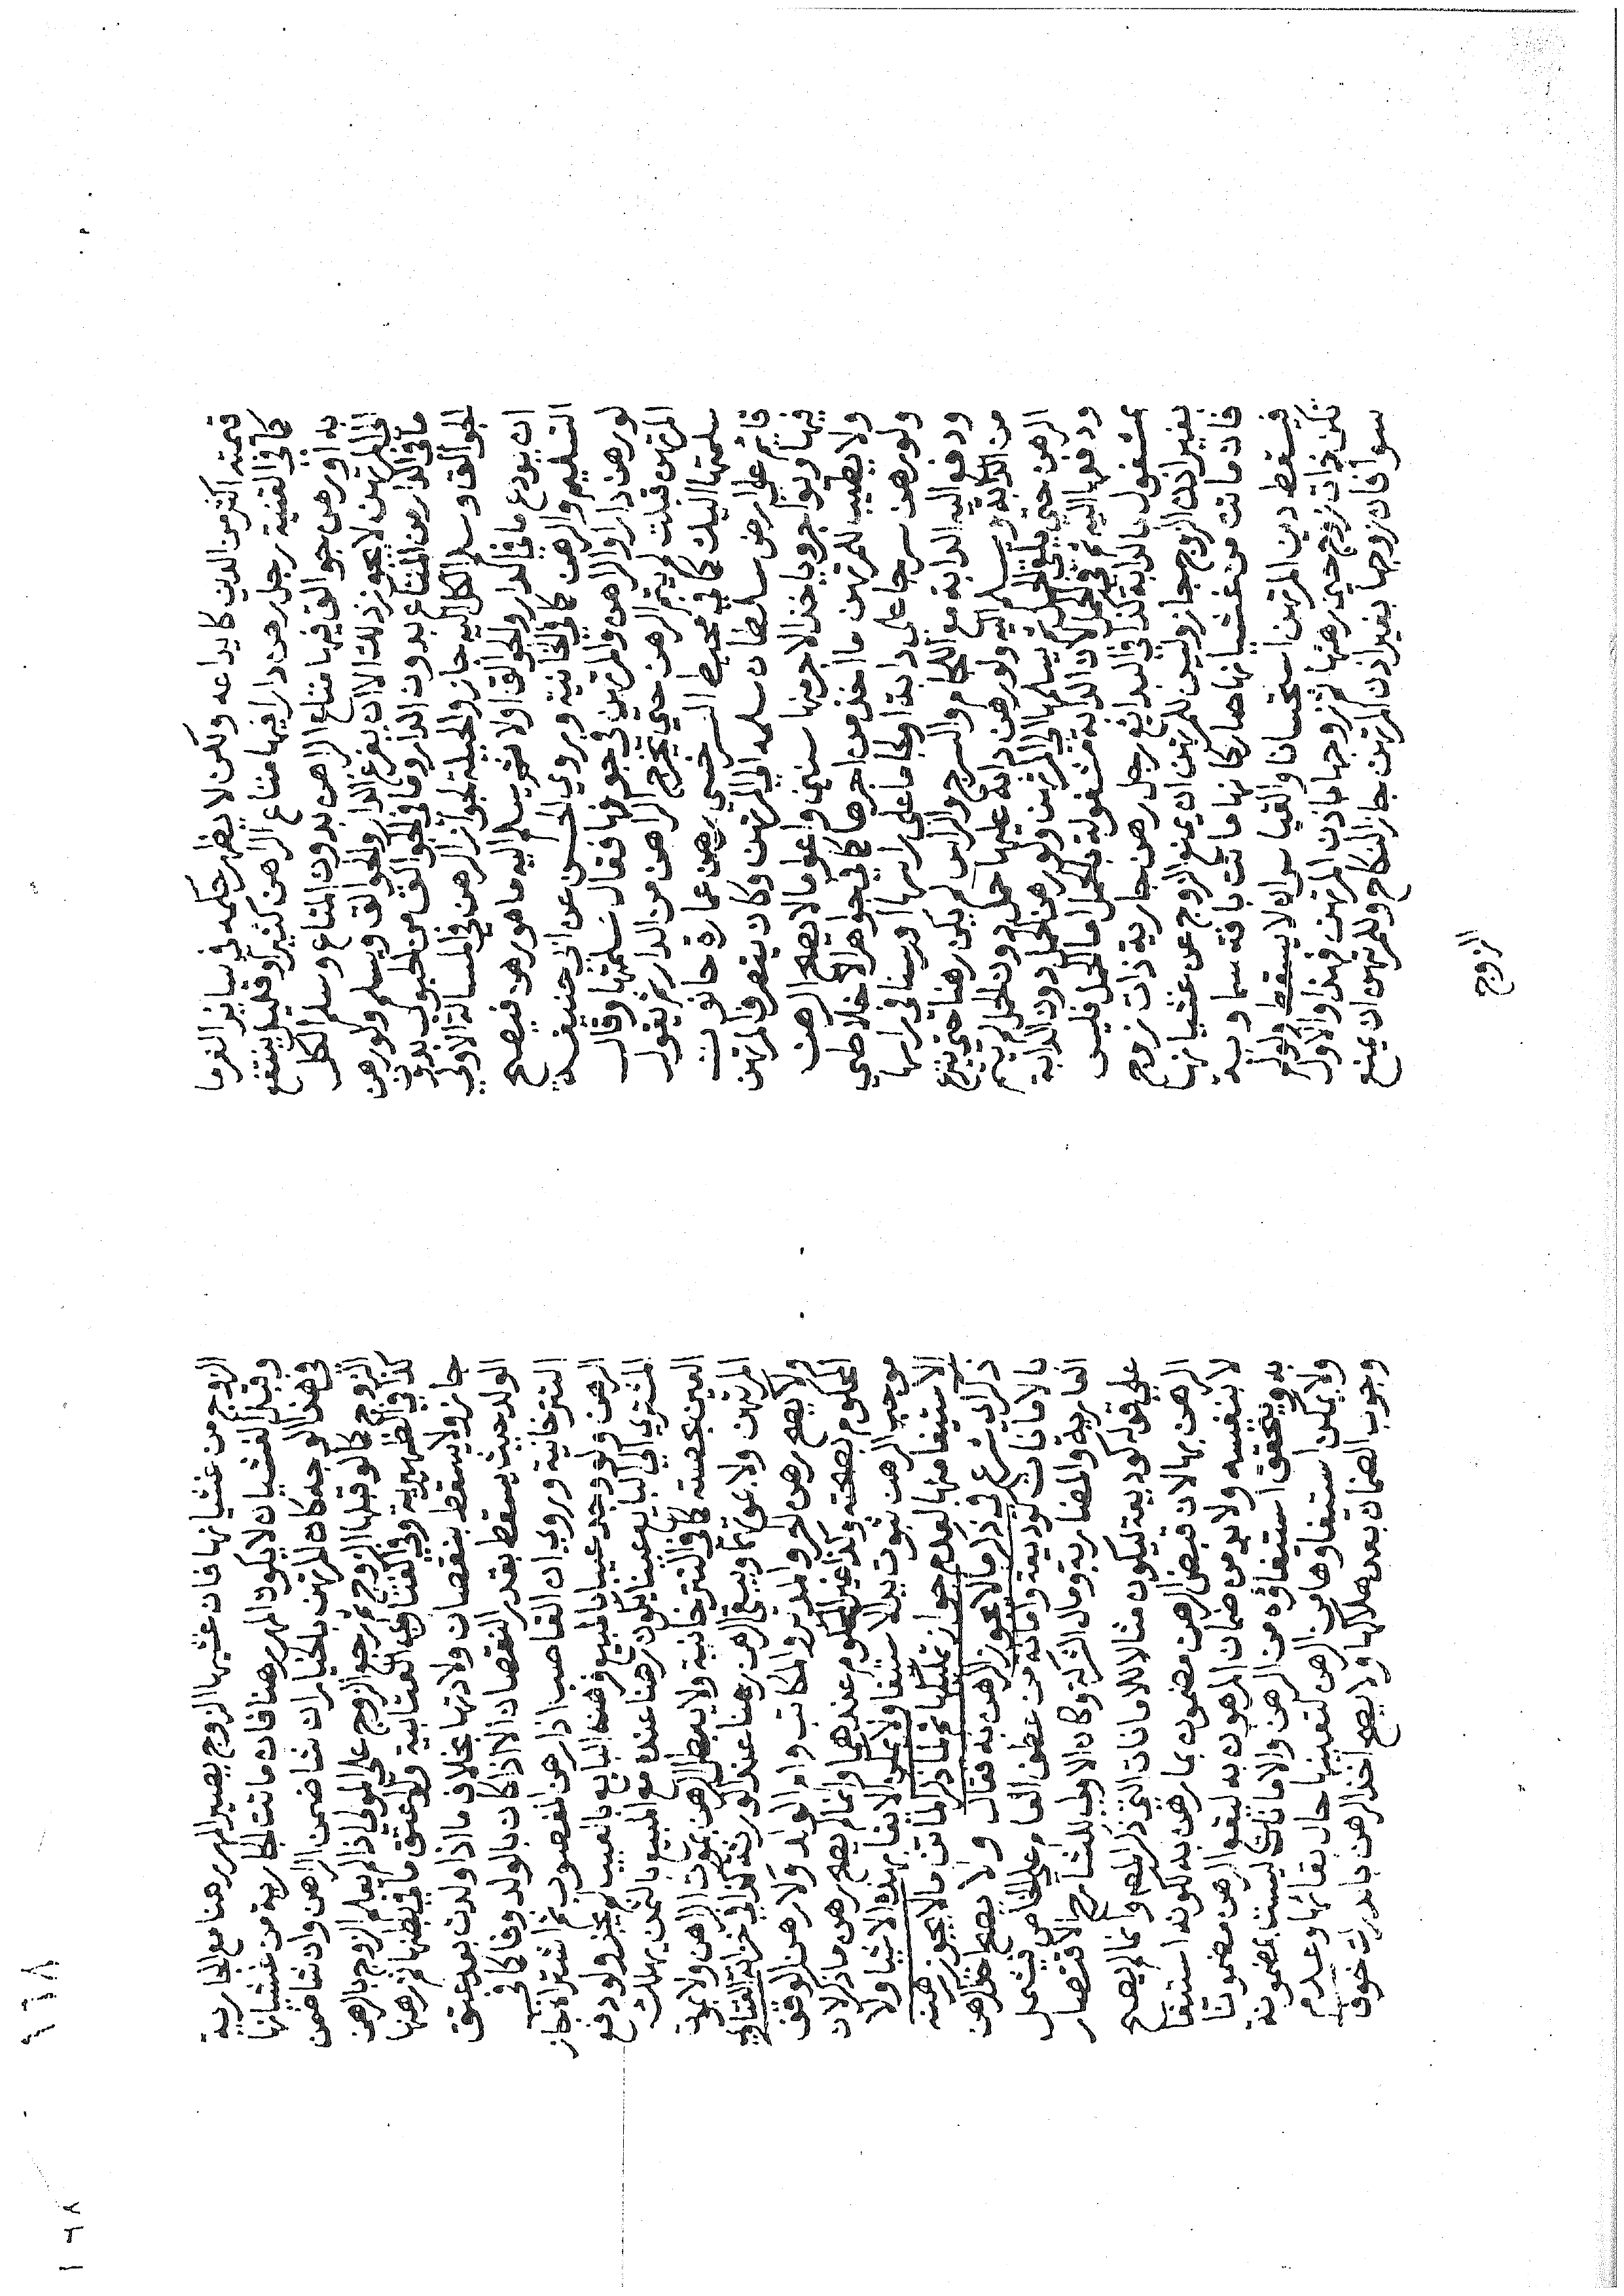 قيمته اكثر من الدين كايداعه ولكن لا يظهر حكمه في سائر الغرما
كما في القنية رجل رهن دارا فيها متاع الراهن كثيرا وقليل ينتفع
به او رهن جوالق فيها متاع الراهن بدون المتاع وسلم الكل
الى المرتهن لا يجوز ذلك الا ان يفرغ الدار والجوالق ويسلم ولو رهن
ما في الدار من المتاع بدون الدار وما في الجوالق من الحبوب بدون
الجوالق وسلم الكل اليه جاز والحيلة لجواز الرهن في المسالة الاولى
ان يودع ما في الدار والجوالق اولا ثم يسلم اليه ما هو رهن فيصح
التسليم والرهن كما في الخانية وروي الحسن عن ابي حنيفة
لو رهن دارا والراهن والمرتهن في جوفها فقال سلمتها وقال
المرتهن قبلت لم يتم الرهن حتى يخرج الراهن من الدار ثم يقول
سلمتها اليك كما في محيط السرخسي رهن عمارة حانوت
قائم على ارض سلطان سلمه الى المرتهن وكان يتصرف المرتهن
فيها ويواجر وياخذ الاجر منها سنين واعواما لا يصح الرهن
ولا يطيب للمرتهن ما اخذ من اجرها كما في جواهر الاخلاطي
ولو رهن سرجا على دابة او لجاما على راسها او رسنا في راسها
ودفع اليه الدابة مع اللجام والسرج والراس لم يكن رهنا حتى ينزع
من الدابة ويسلم اليه ولو رهن دابة عليها حمل دون الحمل لم يتم
الرهن حتى يلقي الحمل ثم يسلمها الى المرتهن ولو رهن الحمل دون الدابة
ودفعها اليه تم في الحمل لان الدابة مشغولة بالحمل اما الحمل فليس
مشغول بالدابة كذا في البدائع رجل رهن جارية ذات زوج
بغير اذن الزوج جاز وليس للمرتهن ان يمنع الزوج عن غشيانها
فان ماتت من غشيانها صار كانها ماتت بافة سماوية
فيسقط دين المرتهن استحسانا والقياس ان لا يسقط ولو لم
تكن ذات زوج حين رهنها ثم زوجها باذن المرتهن فهذا والاول
سوا فان زوجها بغير اذن المرتهن جاز النكاح وللمرتهن ان يمنع
الزوج
الزوج من غشيانها فان غشيها الزوج يصير المهر رهنا مع الجارية
وقبل الغشيان لا يكون المهر رهنا فان ماتت الجارية من غشيانها
في هذا الوجه كان المرتهن بالخيار ان شا ضمن الراهن وان شا ضمن
الزوج كما لو قتلها الزوج ثم رجع الزوج على المولى اذا لم يعلم الزوج بالرهن
كذا في الظهيرية وفي الفتاوى العتابية ولو اعتق ما في بطنها ثم رهنها
جاز ولا يسقط بنقصان ولادتها بخلاف ما اذا ولدت بعد عتق
الولد حيث يسقط بقدر النقصان الا اذا كان بالولد وفا كما في
التترخانية وروي ان الغاصب اذا رهن المغصوب ثم اشتراه جاز
الرهن ولو وجد عيبا بالمبيع فرهنه البايع بالعيب لم يجز ولو دفع
المشتري الى البايع عينا ليكون رهنا عنده مع المبيع بالثمن يهلك
العين بحصته كما في التترخانية ولا يبطل الرهن بموت الراهن ولا بموت
المرتهن ولا بموتهما ويبقى الرهن رهنا عند الورثة كذا في خزانة الفتاوى
ولا يصح رهن الحر والمدبر والمكاتب وام الولد ولا رهن الوقف
المحكوم بصحته وكذا غير المحكوم عندهما وانما لم يصح رهن ما ذكر لان
موجب الرهن ثبوت يد الاستيفا ولا يمكن الايفا بهذه الاشيا ولا
الاستيفا منها لعدم جواز تمليكها ثم لما ذكر الماتن ما لا يجوز رهنه
ذكر انه شرع في ذكر ما لا يجوز الرهن به فقال ولا يصح اخذ الرهن
بالامانات كوديعة وامانة من عطف العام على الخاص فيشمل
العارية والمضاربة ومال الشركة وكان الاولى للشارح الاقتصار
على قوله كوديعة ليكون مثالا للامانات التي ذكرها المص وانما لم يصح
الرهن بها لان قبض الرهن مضمون بما رهن به لكونه استيفا
لا بنفسه ولا بد من ضمان المرهون به ليقع الرهن مضمونا
به ويتحقق استيفاؤه من الرهن والامانات ليست بمضمونة
ولا يمكن استيفاؤها من الرهن لتعينها حال بقائها وعدم
وجوب الضمان بعد هلاكها ولا يصح اخذ الرهن بالدرك خوف
١٦٨
١٦٨